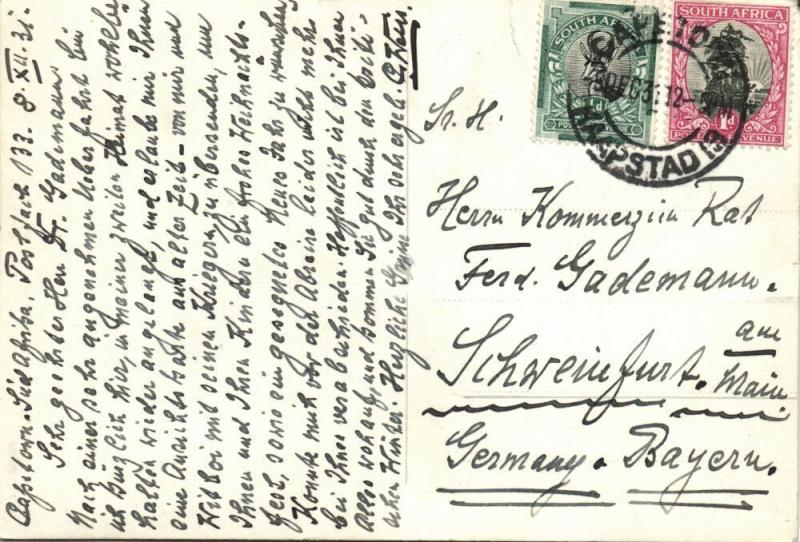 Capstown. Südafrika. Postfach 133. 8. XII. 31.
Sehr geehrter Herr Dr. Gademann
Nach einer sehr angenehmen Ueberfahrt bin
ich kürzlich hier, in meiner zweiten Heimat wohlbe
halten wieder angelangt, und erlaube mir Ihnen
eine Ansichtskarte aus alter Zeit - von mir und
Witboi mit seinen Kriegern, zu übersenden, um
Ihnen und Ihren Kindern ein frohes Weihnachts-
fest, sowie ein gesegnetes Neues Jahr zu wünschen
Konnte mich vor der Abreise leider nicht mehr
bei Ihnen verabschieden. Hoffentlich ist bei Ihnen
Alles wohlauf und kommen Sie gut durch den kriti-
schen Winter. Herzliche Grüsse Ihr sehr ergeb.
SOUTH AFRICA
SOUTH AFRICA
½d
1d
POSTAGE REVENUE
DEC 31 12
KAAPSTAD
Sr. H.
Herrn Kommerzien Rat
Ferd. Gademann.
Schweinfurt. am Main
Germany. Bayern.